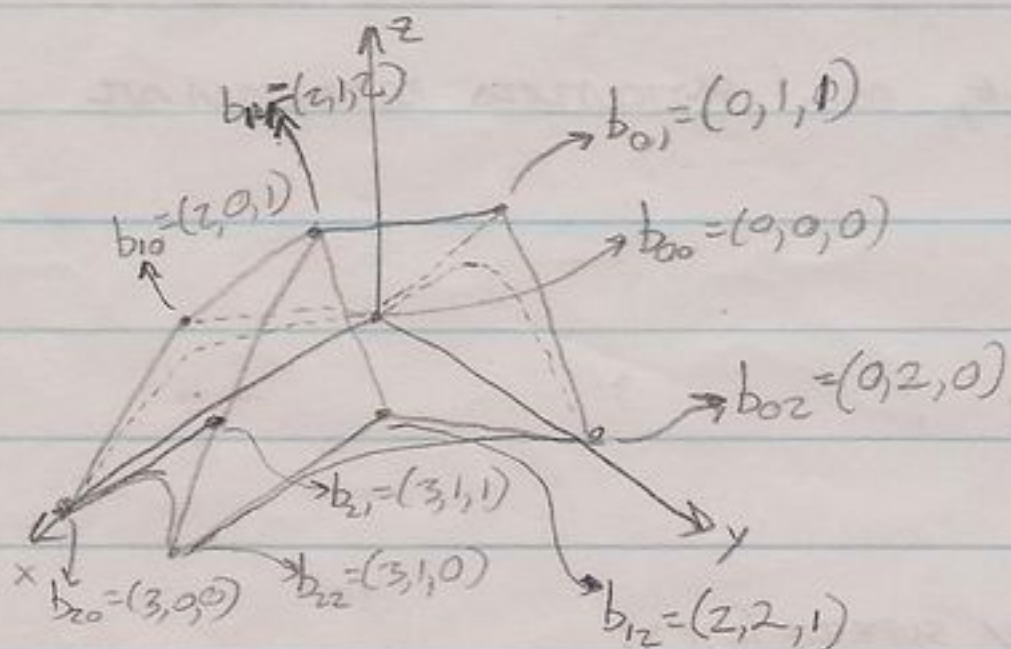 z
b11=(2,1,2)
b01=(0,1,1)
b10=(2,0,1)
b00=(0,0,0)
b02=(0,2,0)
b21=(3,1,1)
y
x
b20=(3,0,0)
b22=(3,1,0)
b12=(2,2,1)